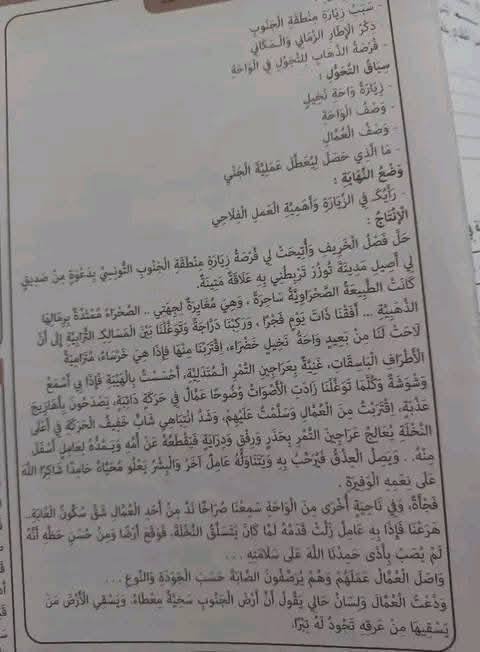 - سَبَبُ زِيَارَةِ مِنْطَقَةِ الْجَنُوبِ
- ذِكْرُ الْإِطَارِ الزَّمَانِيِّ وَالْمَكَانِيِّ
- فُرْصَةُ الذَّهَابِ لِلتَّجَوُّلِ فِي الْوَاحَةِ
سِيَاقُ التَّحَوُّلِ :
- زِيَارَةُ وَاحَةِ نَخِيلٍ
- وَصْفُ الْوَاحَةِ
- وَصْفُ الْعُمَّالِ
- مَا الَّذِي حَصَلَ لِيُعَطِّلَ عَمَلِيَّةَ الْجَنْيِ
وَضْعُ النِّهَايَةِ :
- رَأْيُكَ فِي الزِّيَارَةِ وَأَهَمِّيَّةِ الْعَمَلِ الْفِلَاحِيِّ
الْإِنْتَاجُ :
حَلَّ فَصْلُ الْخَرِيفِ وَأُتِيحَتْ لِي فُرْصَةُ زِيَارَةِ مِنْطَقَةِ الْجَنُوبِ التُّونِسِيِّ بِدَعْوَةٍ مِنْ صَدِيقٍ
لِي أَصِيلِ مَدِينَةِ تُوزَرَ تَرْبِطُنِي بِهِ عَلَاقَةٌ مَتِينَةٌ.
كَانَتْ الطَّبِيعَةُ الصَّحْرَاوِيَّةُ سَاحِرَةً ، وَهِيَ مُغَايِرَةٌ لِجِهَتِي .. الصَّحْرَاءُ مُمْتَدَّةٌ بِرِمَالِهَا
الذَّهَبِيَّةِ ... أَفَقْنَا ذَاتَ يَوْمٍ فَجْرًا ، وَرَكِبْنَا دَرَّاجَةً وَتَوَغَّلْنَا بَيْنَ الْمَسَالِكِ التُّرَابِيَّةِ إِلَى أَنْ
لَاحَتْ لَنَا مِنْ بَعِيدٍ وَاحَةُ نَخِيلٍ خَضْرَاءُ، اِقْتَرَبْنَا مِنْهَا فَإِذَا هِيَ خَرْسَاءُ، مُتَرَامِيَةُ
الْأَطْرَافِ الْبَاسِقَاتِ، غَنِيَّةٌ بِعَرَاجِينِ التَّمْرِ الْمُتَدَلِّيَةِ، أَحْسَسْتُ بِالْهَيْبَةِ فَإِذَا بِي أَسْمَعُ
وَشْوَشَةً وَكُلَّمَا تَوَغَّلْنَا زَادَتِ الْأَصْوَاتُ وُضُوحًا عُمَّالٌ فِي حَرَكَةٍ دَائِبَةٍ، يَصْدَحُونَ بِأَهَازِيجَ
عَذْبَةٍ، اِقْتَرَبْتُ مِنَ الْعُمَّالِ وَسَلَّمْتُ عَلَيْهِمْ، وَشَدَّ انْتِبَاهِي شَابٌّ خَفِيفُ الْحَرَكَةِ فِي أَعْلَى
النَّخْلَةِ يُعَالِجُ عَرَاجِينَ التَّمْرِ بِحَذَرٍ وَرِفْقٍ وَدِرَايَةٍ فَيَقْطَعُهُ عَنْ أُمِّهِ وَيَمُدُّهُ لِعَامِلٍ أَسْفَلَ
مِنْهُ. . وَيَصِلُ الْعِذْقُ فَيُرَحِّبُ بِهِ وَيَتَنَاوَلُهُ عَامِلٌ آخَرُ وَالْبِشْرُ يَعْلُو مُحَيَّاهُ حَامِدًا شَاكِرًا اللهَ
عَلَى نِعَمِهِ الْوَفِيرَةِ .
فَجْأَةً، وَفِي نَاحِيَةٍ أُخْرَى مِنَ الْوَاحَةِ سَمِعْنَا صُرَاخًا نَدَّ مِنْ أَحَدِ الْعُمَّالِ شَقَّ سُكُونَ الْغَابَةِ...
هَرَعْنَا فَإِذَا بِهِ عَامِلٌ زَلَّتْ قَدَمُهُ لَمَّا كَانَ يَتَسَلَّقُ النَّخْلَةَ، فَوَقَعَ أَرْضًا وَمِنْ حُسْنِ حَظِّهِ أَنَّهُ
لَمْ يُصَبْ بِأَذًى حَمِدْنَا اللهَ عَلَى سَلَامَتِهِ ...
وَاصَلَ الْعُمَّالُ عَمَلَهُمْ وَهُمْ يُرَصِّفُونَ الصَّابَةَ حَسَبَ الْجَوْدَةِ وَالنَّوْعِ ...
وَدَّعْتُ الْعُمَّالَ وَلِسَانُ حَالِي يَقُولُ أَنَّ أَرْضَ الْجَنُوبِ سَخِيَّةٌ مِعْطَاءٌ، وَيَسْقِي الْأَرْضَ مَنْ
يَسْقِيهَا مِنْ عَرَقِهِ تَجُودُ لَهُ تِبْرًا.